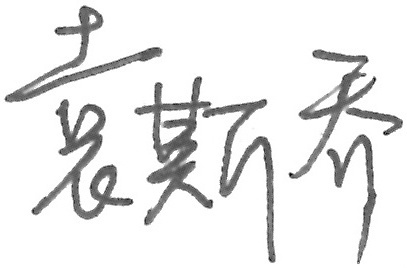 袁斯乔